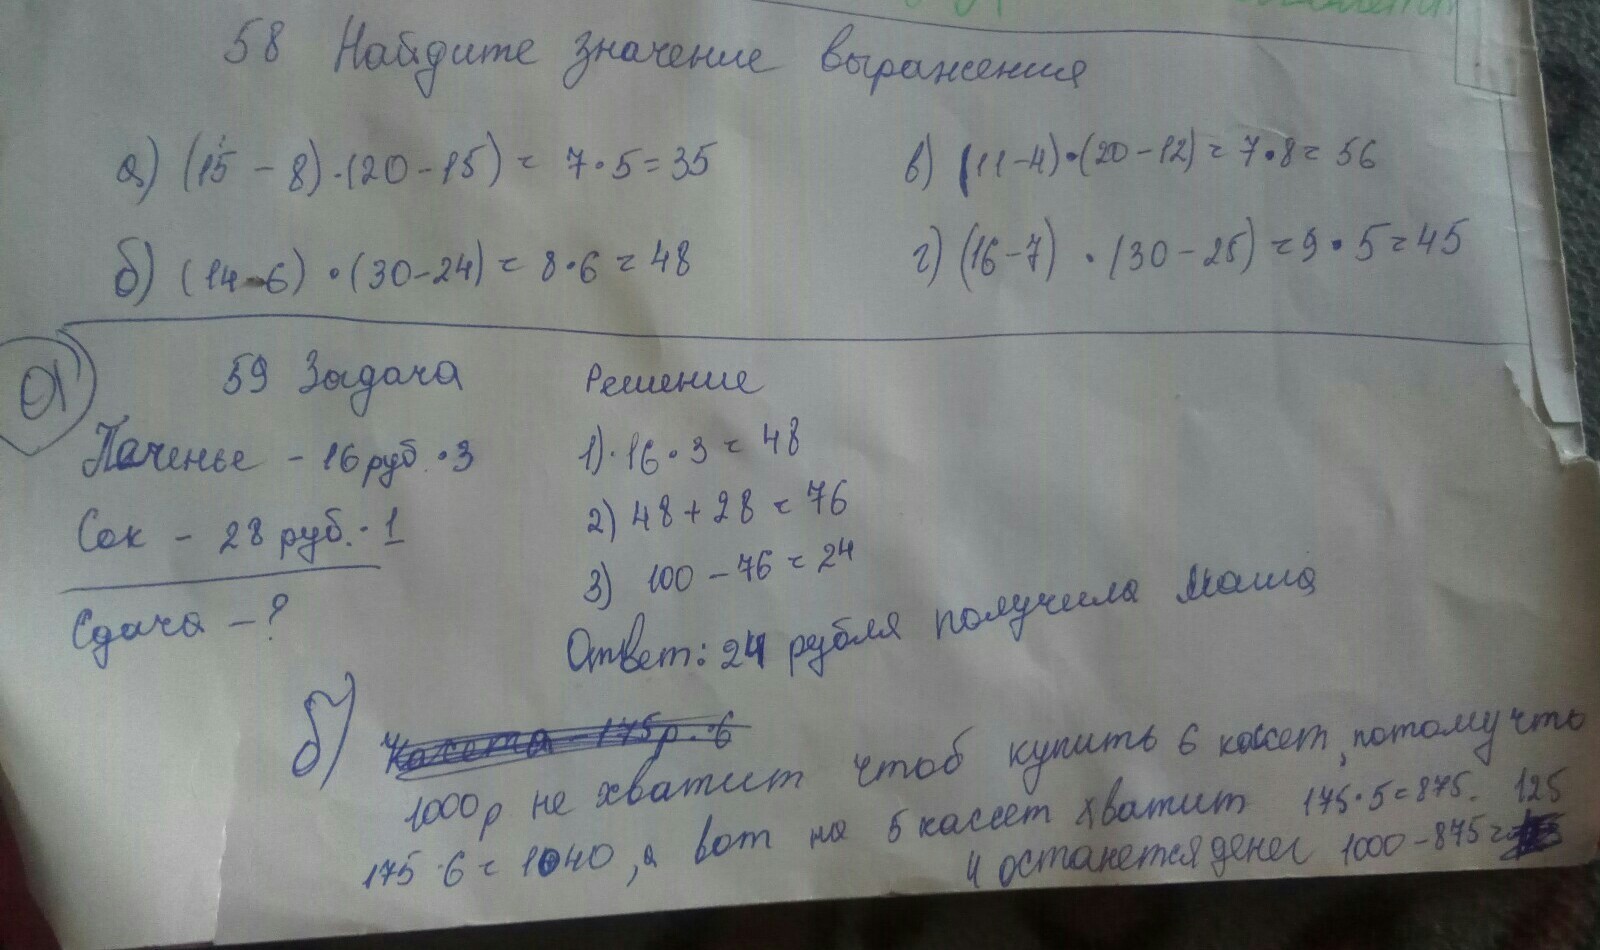 58 Найдите значение выражения
а) (15 - 8) · (20 - 15) = 7 · 5 = 35
в) (11 - 4) · (20 - 12) = 7 · 8 = 56
б) (14 - 6) · (30 - 24) = 8 · 6 = 48
г) (16 - 7) · (30 - 25) = 9 · 5 = 45
а)
59 Задача
Паченье - 16 руб. · 3
Сок - 28 руб. · 1
Сдача - ?
Решение
1) 16 · 3 = 48
2) 48 + 28 = 76
3) 100 - 76 = 24
Ответ: 24 рубля получила Маша
б) Касета - 175р. · 6
1000р не хватит чтоб купить 6 кассет, потому что
175 · 6 = 1040, а вот на 5 кассет хватит 175 · 5 = 875.
и останется денег 1000 - 875 = 125